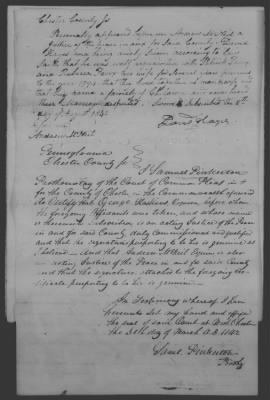 Chester County Ss
Personally appeared before me Andrew McNeil a
Justice of the peace in and for Said County David
Hays who being duly Sworn according to law
Saith that he was well acquainted with
and Rebecca his wife for Several years previous
to the year 1794 that they lived together as man &
that they raised a family of Children and ever heard
their marriage disputed. Sworn & Subscribed the
day of 1842
David Hays
Andrew McNeil
Pennsylvania
Chester County Ss
I Samuel Pinkerton
Prothonotary of the Court of Common Pleas in and
for the County of Chester in the Commonwealth aforesaid
do Certify that George Esquire before whom
the foregoing Affidavits was taken, and whose name
is thereunto Subscribed is an acting Justice of the Peace
in and for said County duly Commissioned and qualified
and that the signature purporting to be his is genuine
and that Andrew McNeil Esquire is also
an acting Justice of the Peace in and for said County
and that the signature attached to the foregoing
purporting to be his is genuine
In Testimony whereof I have
hereunto set my hand and affixed
the seal of said Court at West Chester
the day of March A.D. 1842
Saml Pinkerton
Prothy